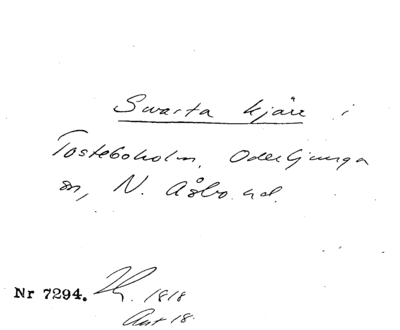 Swarta kjärr i
Tosteboholm, Oderljunga
sn, N. Åsbo hd.
Nr 7294. 1818
Akt 18.